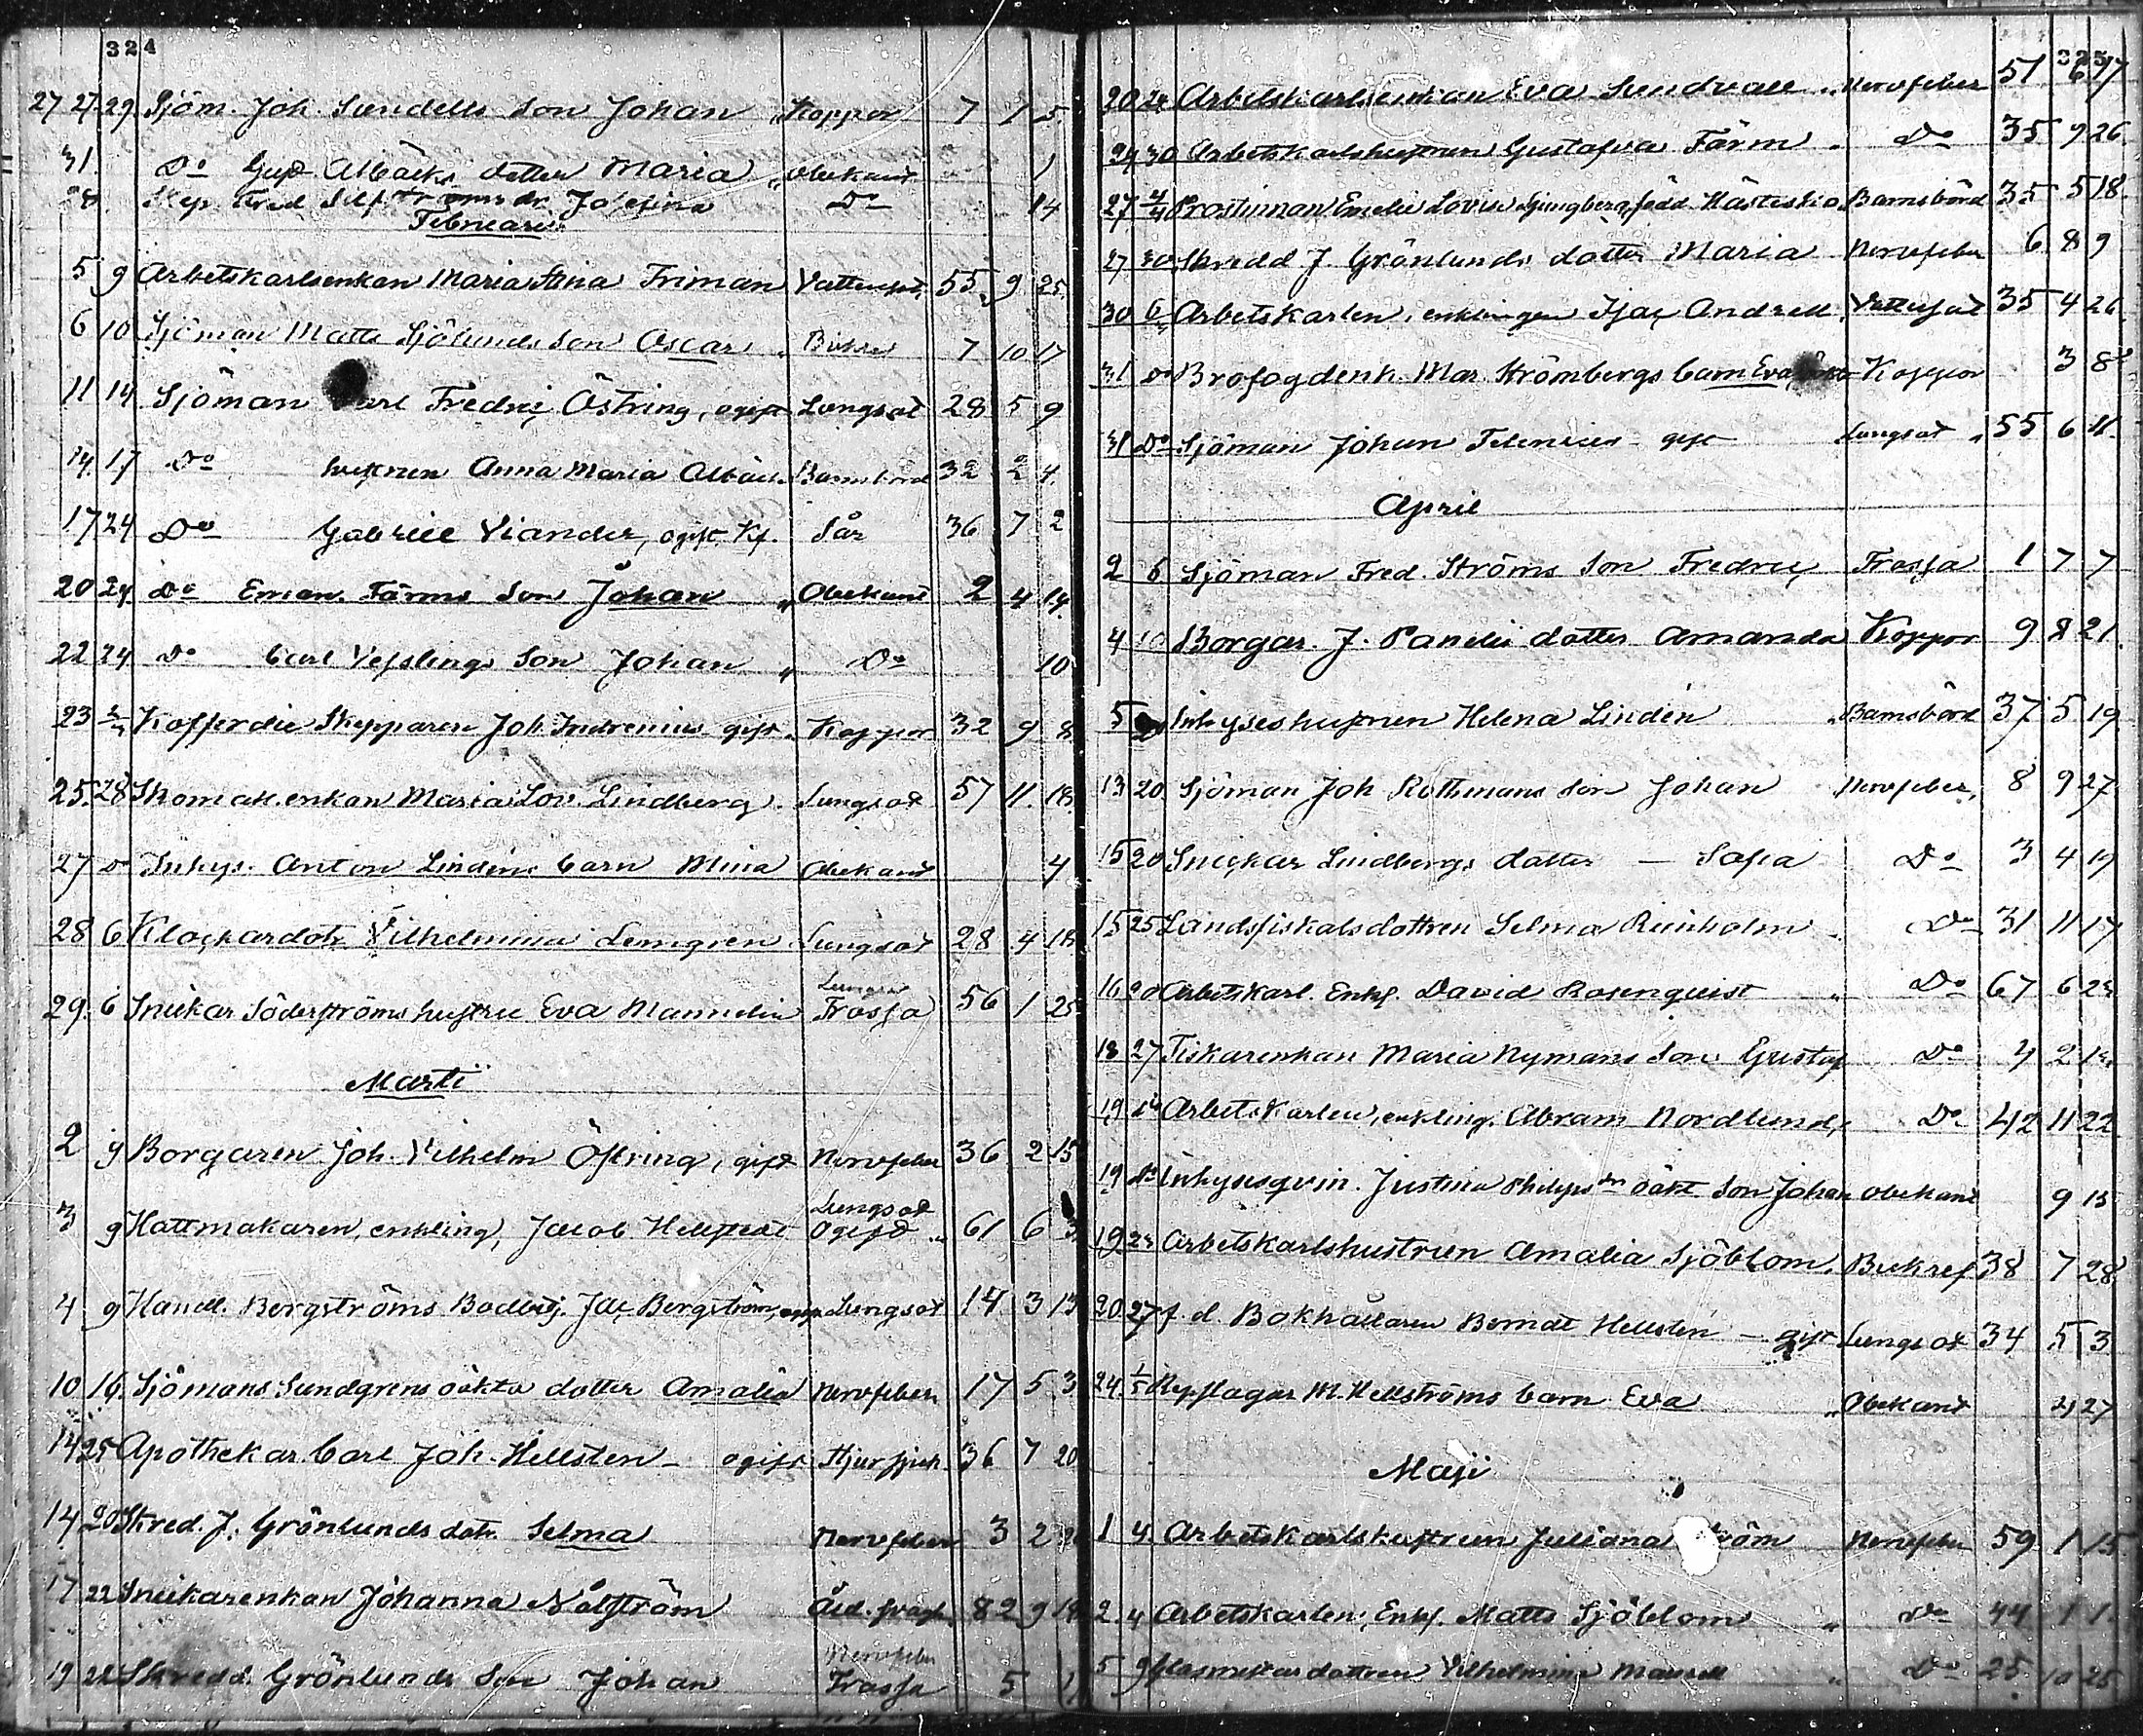 324
27 27 29 Sjöm. Joh. Sundells Son Johan „ Koppor 7 1 5
31. Do Albäcks dotter Maria „ obekant 1
28. Skep. Fred. dr Josefina Do 14
Februari.
5 9 Arbetskarlsenkan Maria Stina Friman Vattensot 55 9 25.
6 10 Sjöman Matts Sjölunds Son Oscar „ 7 10 17
11 14 Sjöman Carl Fredric Östring, ogift Lungsot 28 5 9
14. 17 Do hustrun Anna Maria Albäck Barnsbörd 32 2 4.
17 24 Do Gabriel Viander, ogift. Kf. Sår 36 7 2
20 24. Do Eman. Färms Son Johan „ Obekant 2 4 14.
22 24 Do Carl Son Johan „ Do 10
23 Kofferdie Skepparen Joh. gift. Koppor 32 9 8
25. 28 Skomak.enkan Maria Lov. Lindberg. Lungsot 57 11. 18
27 Do Inhys. Anton Lindéns barn Mina Obekant 4
28 6 Klockardotr Vilhelmina Lemgren Lungsot 28 4 18
29. 6 Snickar Söderströms hustru Eva Mannelin Frossa 56 1 25
Martii
2 9 Borgaren Joh. Vilhelm Östring, gift Nervfeber 36 2 15
3 9 Hattmakaren, enkling, Jacob Lungsot Ogift „ 61 6 3
4 9 Handl. Bergströms Jac. Bergström, Lungsot 14 3 13
10 16. Sjömans Sundgrens oäkta dotter Amalia Nervfeber 17 5 3
14 25 Apothekar. Carl Joh. Hellsten – ogift 36 7 20
14 20 Skred. J. Grönlunds dotr. Selma Nervfeber 3 2
17 22 Snickarenkan Johanna 82 9
19 22 Skredd. Grönlunds Son Johan Nervfeber Frassa 5
325
20 24 Arbetskarlsenkan Eva Sundvall „ Nervfeber 51 6 17
24 30 Arbetskarlshustrun Gustafva Färm „ Do 35 9 26.
27 4/4 Prostinnan Emelie Lovise Ljungberg, född Hästesko. Barnsbörd 35 5 18.
27 30 Skredd J. Grönlunds dotter Maria Nervfeber 6 8 9
30 6 Arbetskarlen, enklingen Isac Andrell. Vattusot 35 4 26
31 Do Brofogdenk. Mar. Strömbergs barn Eva Koppor 3 8
31 Do Sjöman Johan gift Lungsot „ 55 6 11.
April
2 6 Sjöman Fred. Ströms Son Fredric Frassa 1 7 7
4 10 Borgar. J. Panelii dotter Amanda Koppor 9 8 21.
5 Inhyseshustrun Helena Lindén „ Barnsbörd 37 5 19
13 20 Sjöman Joh Rothmans Son Johan Nervfeber, 8 9 27
15 20 Snickar Lindbergs dotter — Sofia Do 3 4 19
15 25 Landsfiskalsdottren Selma Reinholm Do 31 11 17
16 20 Arbetskarl. Enkf. David Rosenquist „ Do 67 6 23
18 27 Fiskarenkan Maria Nymans Son Gustaf Do 4 2
19 Arbetskarlen, enkling. Abram Nordlund, Do 42 11 22
19 Do Inhysesqvin. Justina Philips dr oäkt. Son Johan obekant 9 13
19 23 Arbetskarlshustrun Amalia Sjöblom. 38 7 28
20 27 f. d. Bokhållaren Berndt Hellstén — gift Lungsot 34 5 3
24. 1/5 Repslagar M. Hellströms barn Eva „ Obekant 4 27
Maji
1 4. Arbetskarlshustrun Juliana Nervfeber 59 1 15
2. 4 Arbetskarlen, Enkf. Matts Sjöblom „ Do 44 1 1.
5 9 Vilhelmina „ Do 25 10 25